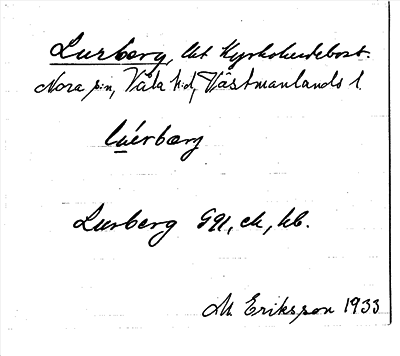 Lurberg, lht Kyrkoherdebost.
Nora s:n, Våla h:d, Västmanlands l.
lúrbærg
Lurberg GU, ek, hb.
M Eriksson 1933